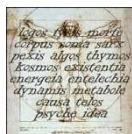 logos physis morfe
corpus soma sarx
pexis algos thymos
kosmos existentia
energeia entelechia
dynamis metabole
causa telos
psyche idea